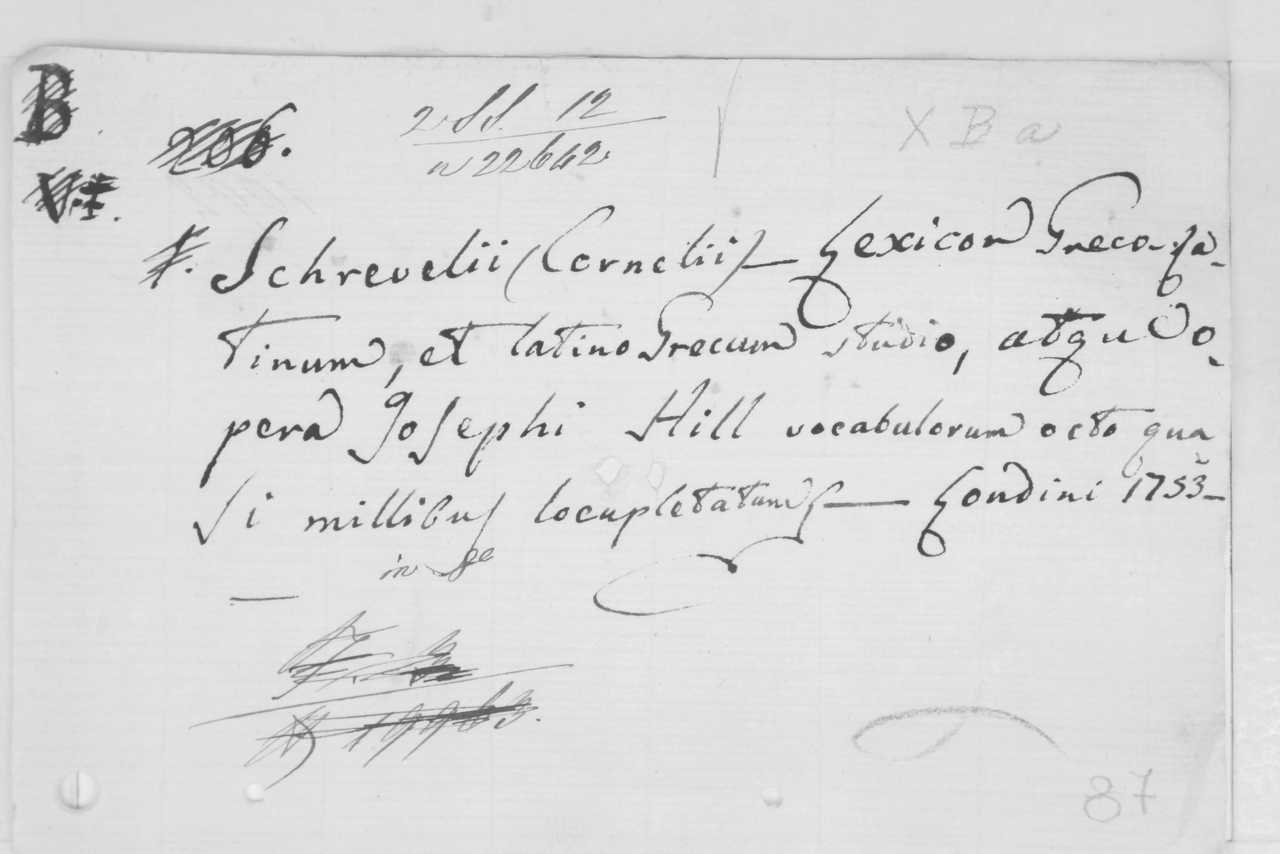 B
206.
2 SS. 12
n 22642
X B a
V.I.
Schrevelii (Cornelii) — Lexicon Greco-La-
tinum, et latino Grecum studio, atque o-
pera Josephi Hill vocabulorum octo qua
si millibus locupletatum — Londini 1753 —
in 8º
N 19963.
87